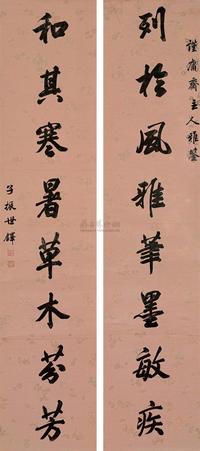 齋主人雅鑒
列於風雅筆墨敏疾
和其寒暑草木芬芳
子振世鐸